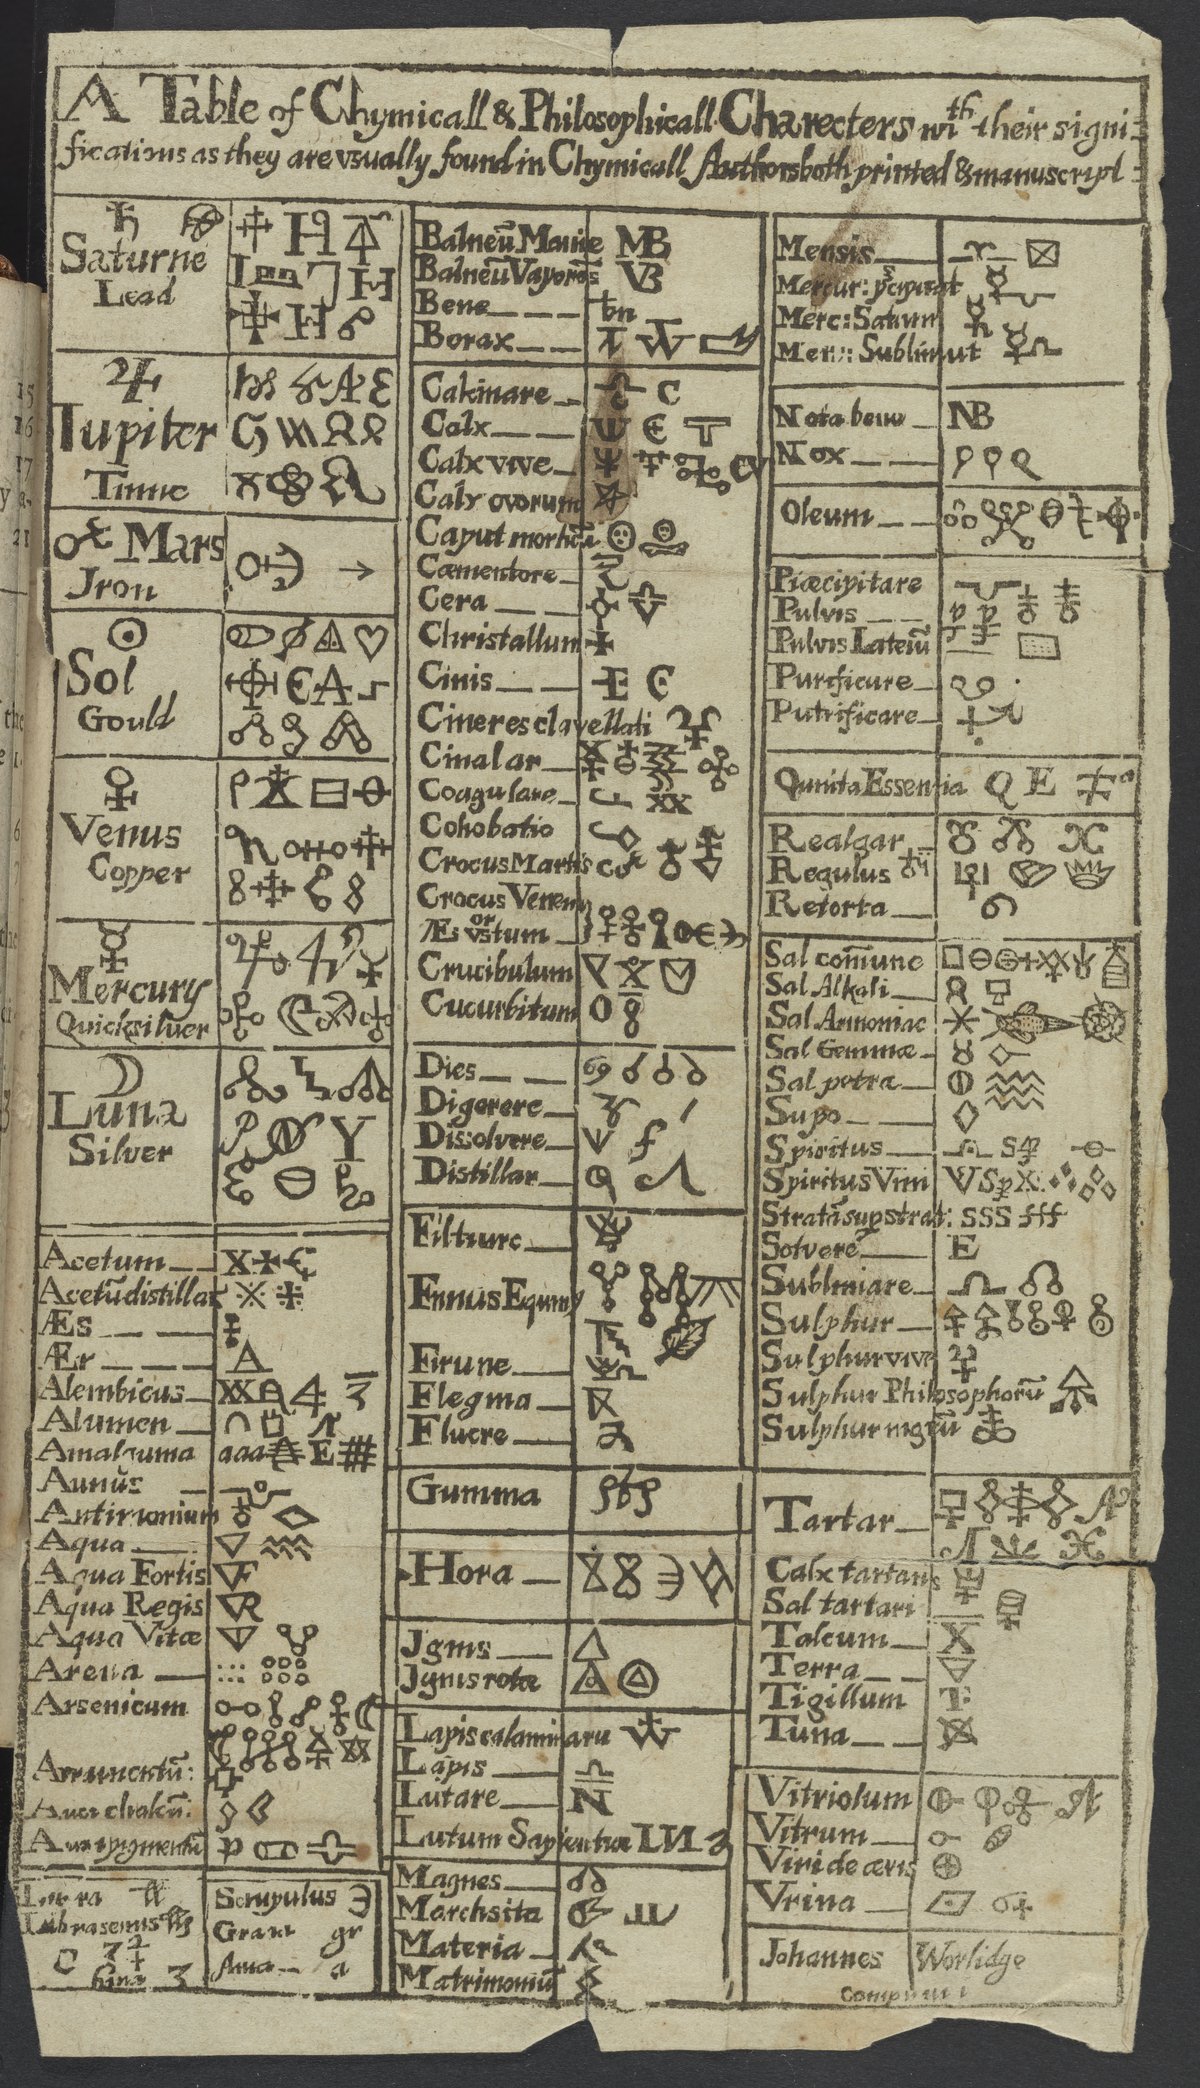 A Table of Chymicall & Philosophicall Charecters wth their signi:
fications as they are vsually found in Chymicall Authors both printed & manuscript:
Saturne
Lead
Iupiter
Tinne
Mars
Jron
Sol
Gould
Venus
Copper
Mercury
Quicksiluer
Luna
Silver
Acetum
Acetū distillat
Æs
Ær
Alembicus
Alumen
Amalgama aaa E
Antimonium
Aqua
Aqua Fortis
Aqua Regis
Aqua Vitæ
Arena
Arsenicum
Auripigmentū
Scrupulus
Gran gr
Ana a
Balneū Mariæ MB
Balneū Vaporos VB
Bene bn
Borax
Calcinare C
Calx
Calx vive
Calx ovorum
Caput mortuū
Cæmentare
Cera
Christallum
Cinis
Cineres clavellati
Cinabar
Coagulare
Cohobatio
Crocus Martis
Crocus Veneris
or
Æs vstum
Crucibulum
Cucurbitum
Dies
Digerere
Dissolvere
Distillar
Filtrare
Fimus Equiny
Flegma
Fluere
Gumma
Hora
Jgnis
Jgnis rotæ
Lapis calaminaru
Lapis
Lutare
Lutum Sapientiæ
Magnes
Marchsita
Materia
Matrimoniū
Mensis
Mercur: p̄cipitat
Merc: Saturn
Mer: Sublimat
Nota bene NB
Nox
Oleum
Præcipitare
Pulvis
Pulvis Laterū
Purificare
Putrificare
Quinta Essentia Q E
Realgar
Regulus
Retorta
Sal com̄une
Sal Alkali
Sal Armoniac
Sal Gemmæ
Sal petra
Sapo
Spiritus
Spiritus Vini
Stratū sup strat: SSS fff
Solvere E
Sublimare
Sulphur
Sulphur vive
Sulphur Philosophorū
Sulphur nigrū
Tartar
Calx tartaris
Sal tartari
Talcum
Terra
Tigillum
Tuna
Vitriolum
Vitrum
Viride æris
Vrina
Johannes Worlidge